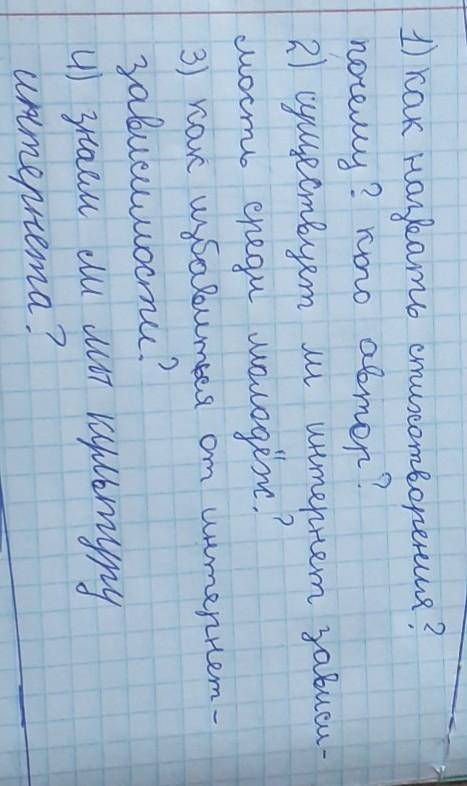 1) как назвать стихотворения?
почему? кто автор?
2) существует ли интернет зависи-
мость среди молодёж?
3) как избавиться от интернет-
зависимости?
4) знаем ли мы культуру
интернета?